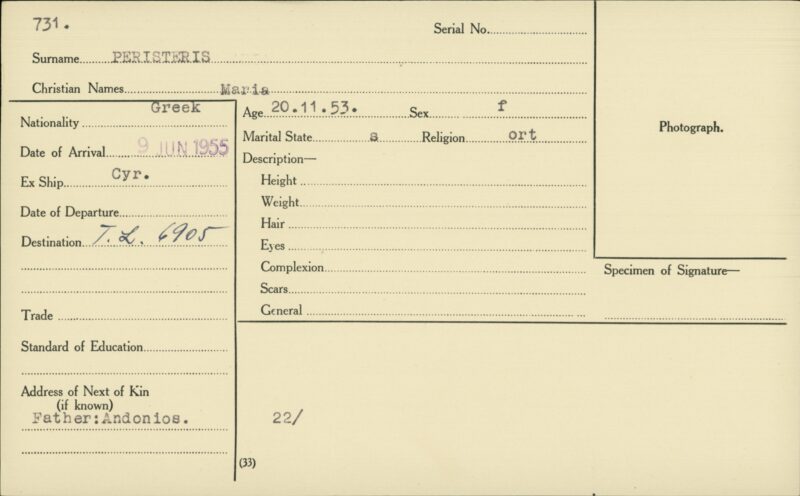 731.
Serial No.
Surname PERISTERIS
Christian Names Maria
Nationality Greek
Date of Arrival 9 JUN 1955
Ex Ship Cyr.
Date of Departure
Destination T.L. 6905
Trade
Standard of Education
Address of Next of Kin
(if known)
Father:Andonios.
Age 20.11.53. Sex f
Marital State s Religion ort
Description—
Height
Weight
Hair
Eyes
Complexion
Scars
General
22/
(33)
Photograph.
Specimen of Signature—